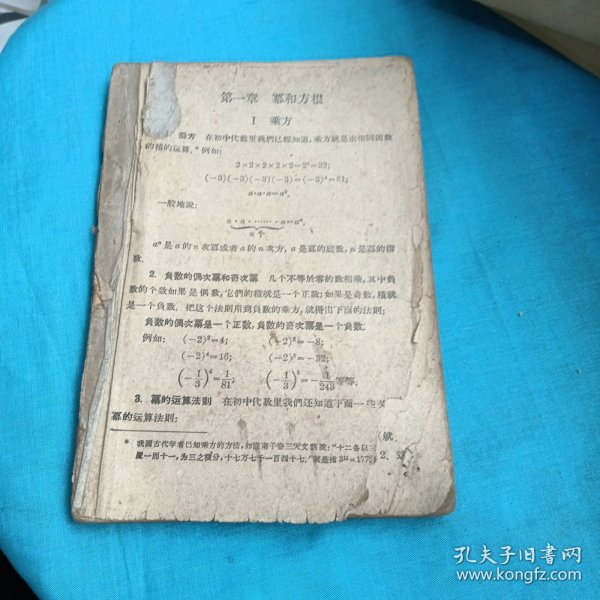 第一章 幂和方根
I 乘方
乘方 在初中代数里我們已經知道,乘方就是求相同因数
的积的运算.* 例如:
2×2×2×2×2=2⁵=32;
(−3)(−3)(−3)(−3)=(−3)⁴=81;
a·a·a=a³.
一般地說:
n个
aⁿ 是 a 的 n 次幂或者 a 的 n 次方, a 是幂的底数, n 是幂的指
数.
2. 負数的偶次幂和奇次幂 几个不等於零的数相乘,其中負
数的个数如果是偶数,它們的積就是一个正数;如果是奇数,積就
是一个負数. 把这个法則用到負数的乘方,就得出下面的法則:
負数的偶次幂是一个正数,負数的奇次幂是一个負数.
例如: (−2)²=4; (−2)³=−8;
(−2)⁴=16; (−2)⁵=−32;
(−1/3)⁴=1/81; (−1/3)⁵=−1/243 等等.
3. 幂的运算法則 在初中代数里我們还知道下面一些
幂的运算法則:
* 我国古代学者已知乘方的方法,如淮南子卷三天文訓說:"十二各以三
置一而十一,为三之積分,十七万七千一百四十七."就是指 3¹¹=177,
孔夫子旧书网
www.kongfz.com